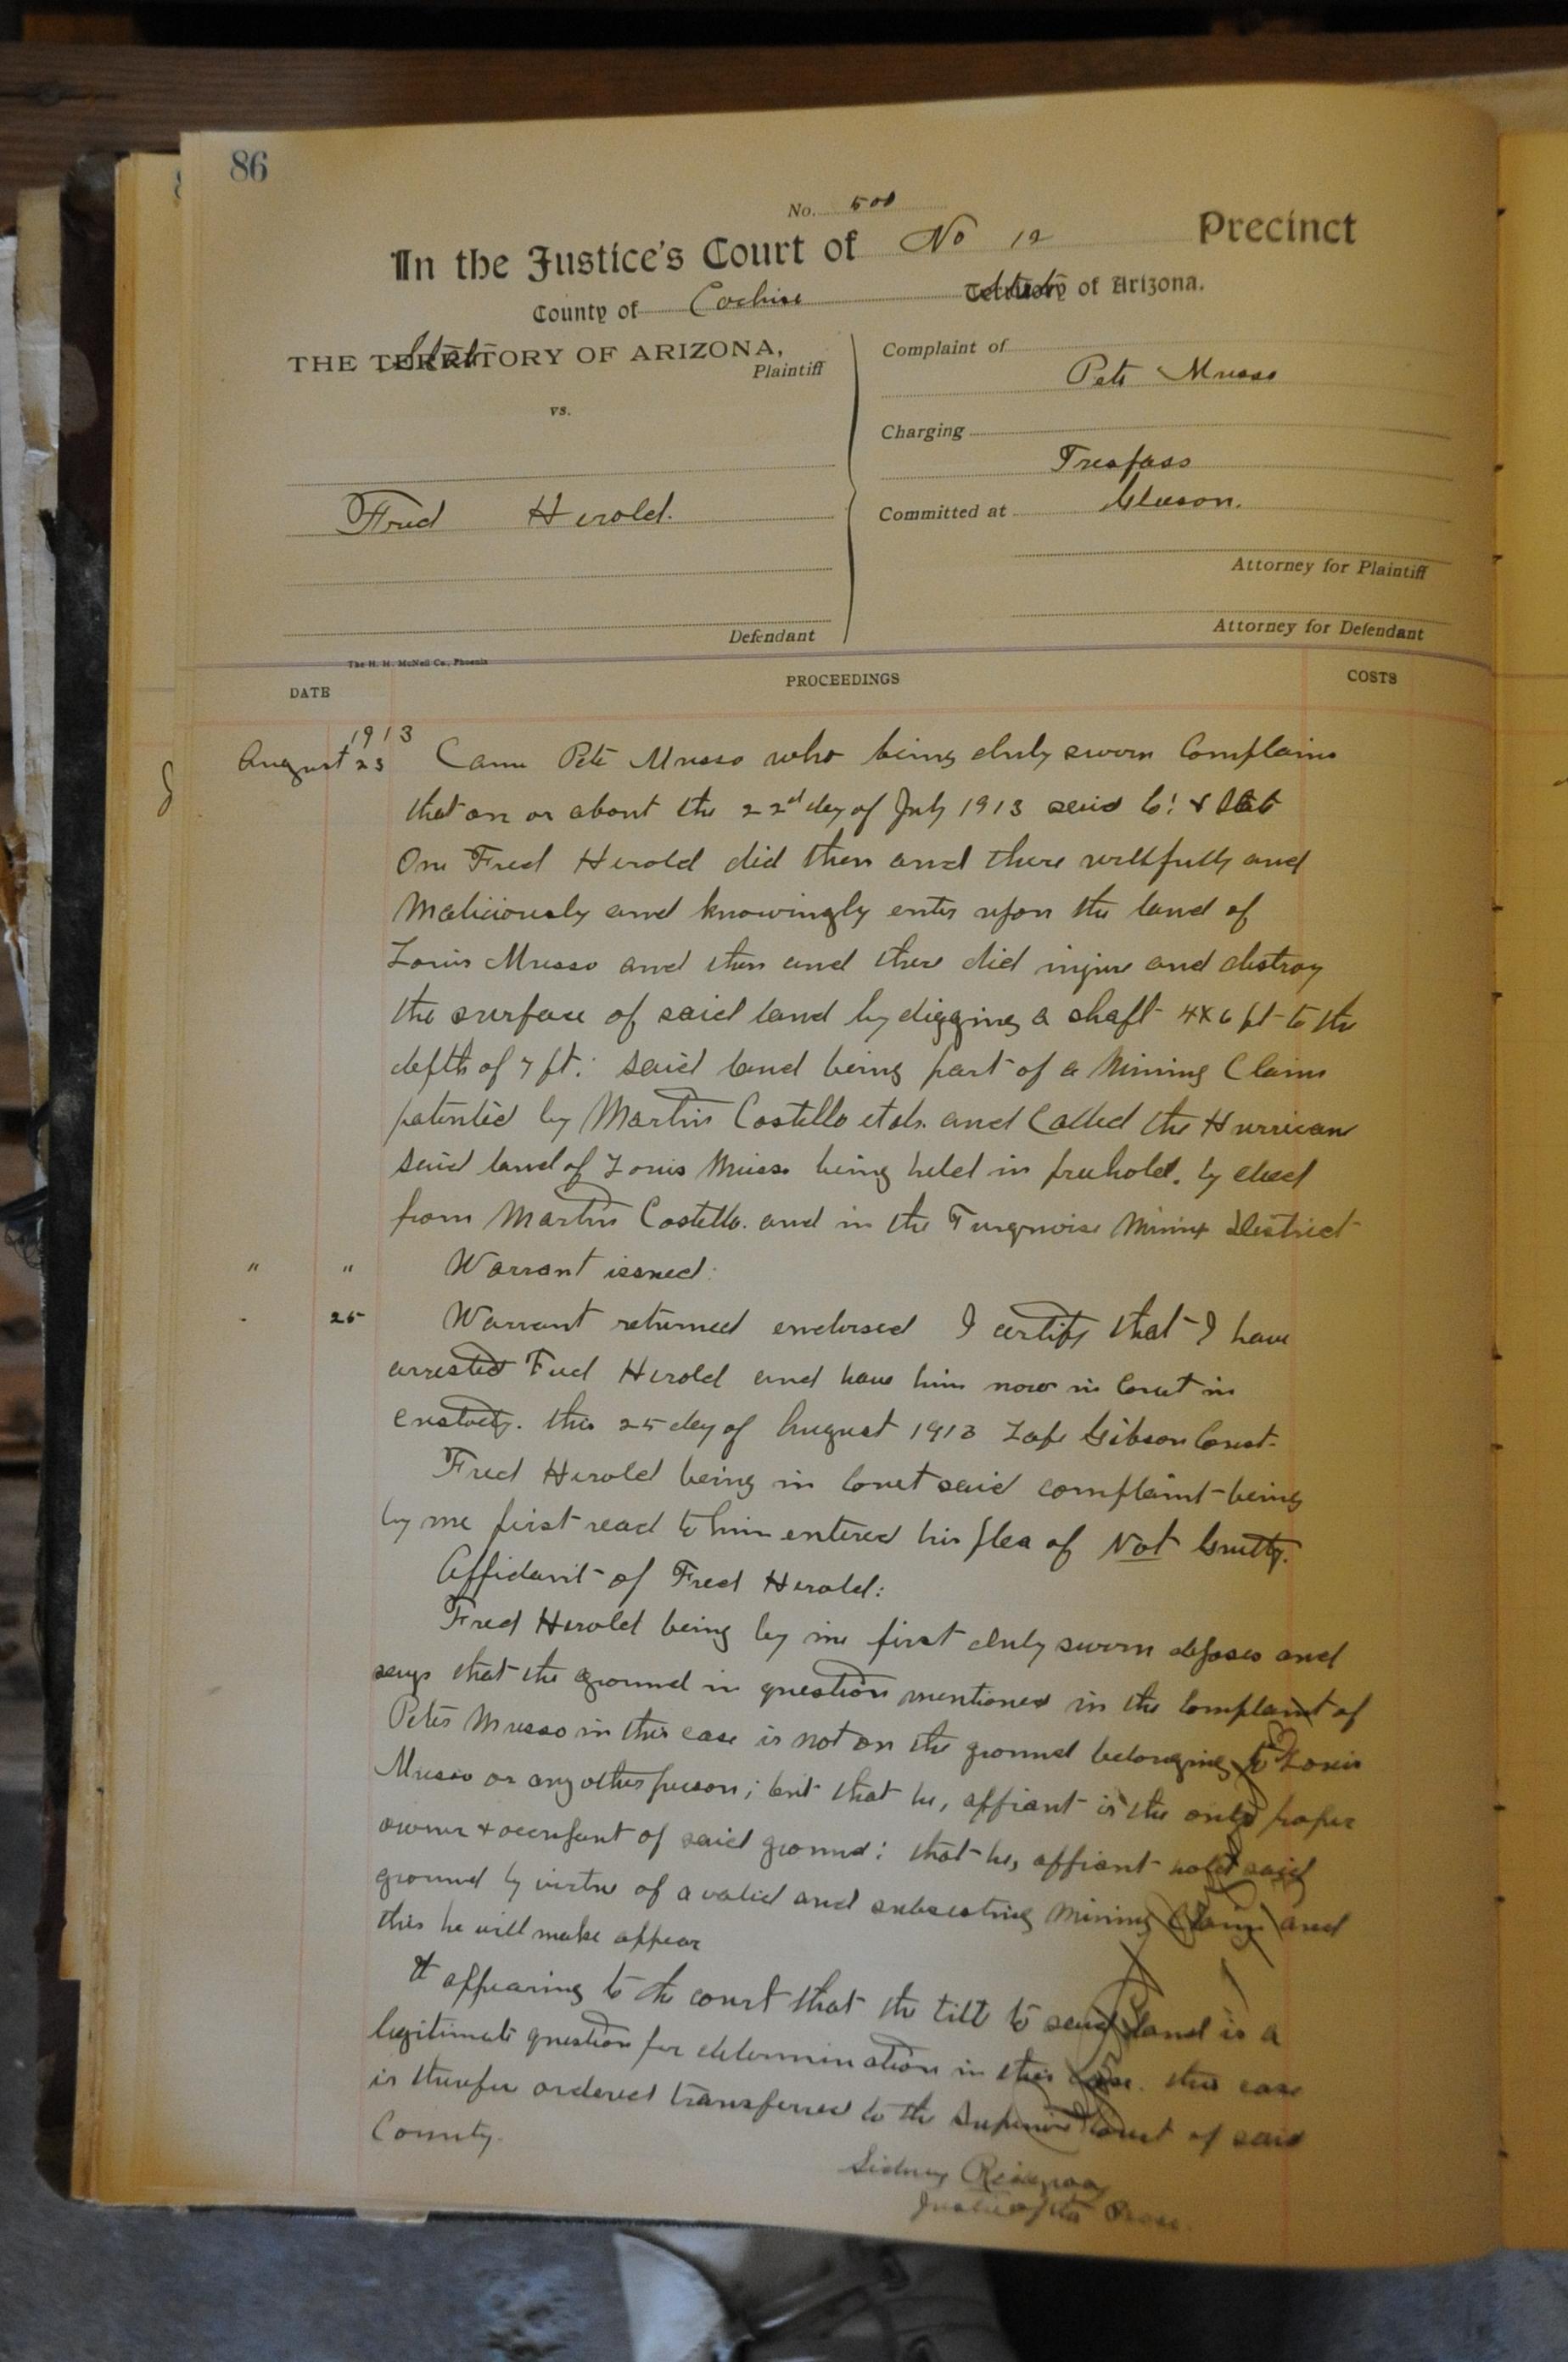 86
No. 500
In the Justice's Court of No 12 Precinct
County of Cochise State of Arizona.
THE State OF ARIZONA,
Plaintiff
vs.
Fred Herold.
Defendant
Complaint of
Pete Musso
Charging
Trespass
Committed at Gleeson.
Attorney for Plaintiff
Attorney for Defendant
The H. H. McNeil Co., Phoenix
DATE PROCEEDINGS COSTS
1913
August 23 Came Pete Musso who being duly sworn Complains
that on or about the 22d day of July 1913 said Co! & State
One Fred Herold did then and there willfully and
Maliciously and knowingly enter upon the land of
Louis Musso and then and there did injure and destroy
the surface of said land by digging a shaft 4X6 ft to the
depth of 7 ft: said land being part of a Mining Claim
patented by Martin Costello et als. and Called the Hurrican
said land of Louis Musso being held in freehold, by deed
from Martin Costello. and in the Turquoise Mining District
" " Warrant issued:
25 Warrant returned endorsed I certify that I have
arrested Fred Herold and have him now in Court in
custody. this 25 day of August 1913 Gibson Const.
Fred Herold being in Court said complaint being
by me first read to him entered his plea of Not Guilty.
Affidavit of Fred Herold:
Fred Herold being by me first duly sworn deposes and
says that the ground in question mentioned in the Complaint of
Peter Musso in this case is not on the ground belonging to Louis
Musso or any other person; but that he, affiant is the only proper
owner & occupant of said ground: that he, affiant hold said
ground by virtue of a valid and subsisting Mining Claim and
this he will make appear
It appearing to the court that the title to said land is a
legitimate question for determination in this case. this case
is therefore ordered transferred to the Superior Court of said
County.
Sidney
Justice of the Peace.